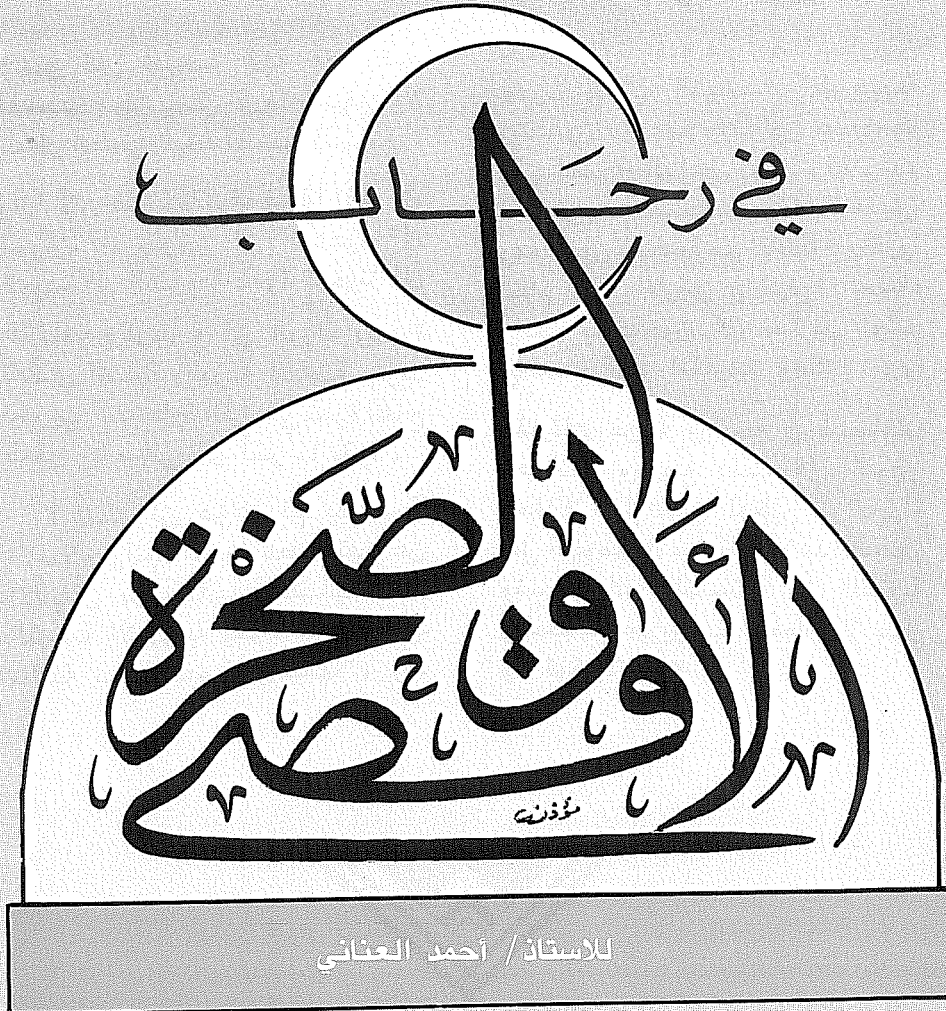 في رحاب
الأقصى والصخرة
للاستاذ/ أحمد العناني